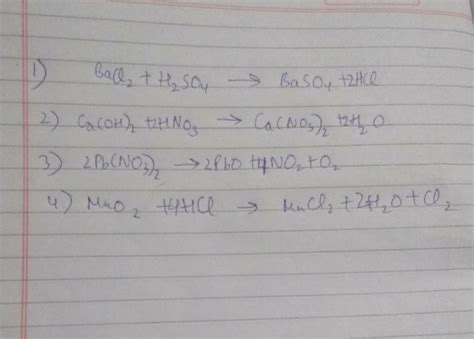 1) BaCl₂ + H₂SO₄ → BaSO₄ + 2HCl
2) Ca(OH)₂ + 2HNO₃ → Ca(NO₃)₂ + 2H₂O
3) 2Pb(NO₃)₂ → 2PbO + 4NO₂ + O₂
4) MnO₂ + 4HCl → MnCl₂ + 2H₂O + Cl₂